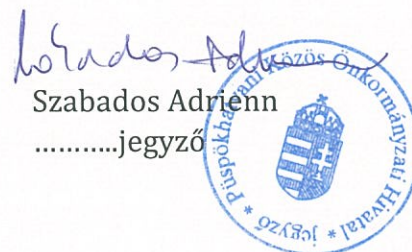 Szabados
Szabados Adrienn
………..jegyző
Püspökhatvani Közös Önkormányzati Hivatal * jegyző *